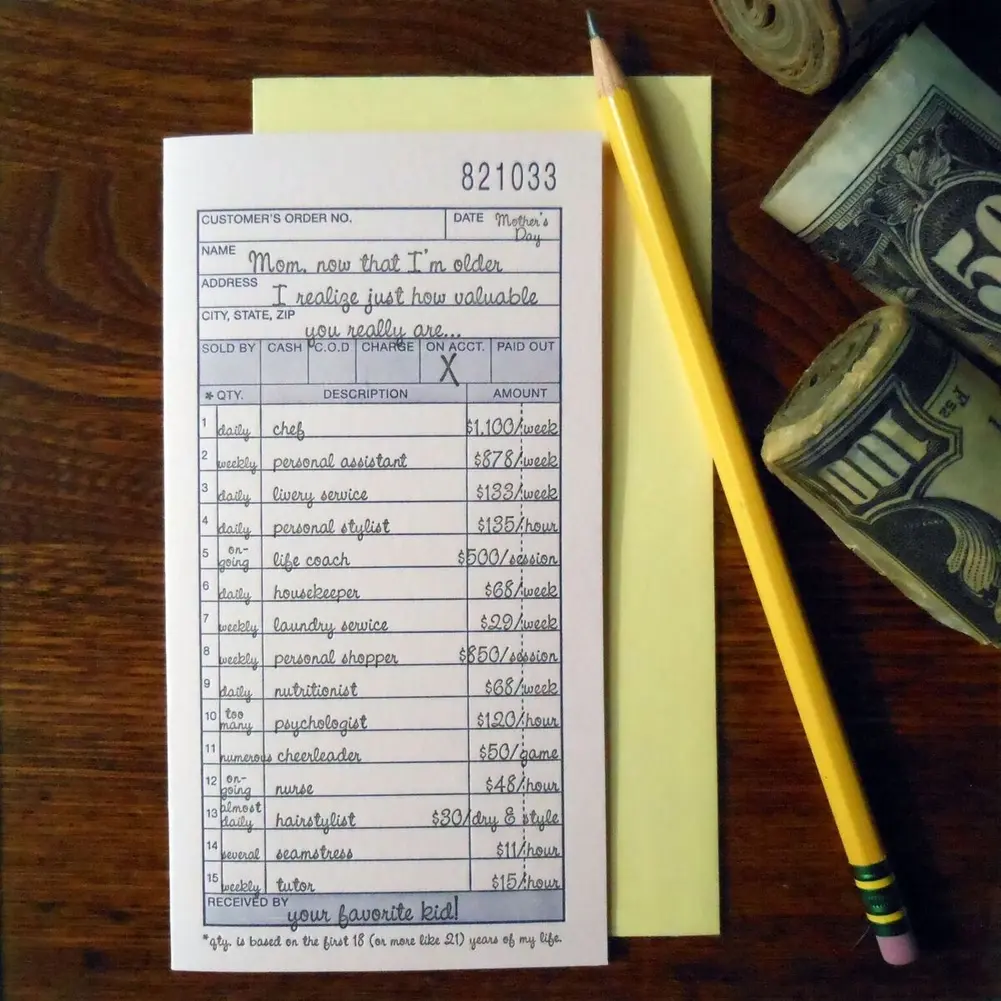 821033
CUSTOMER'S ORDER NO. DATE Mother's Day
NAME Mom, now that I'm older
ADDRESS I realize just how valuable
CITY, STATE, ZIP you really are...
SOLD BY CASH C.O.D CHARGE ON ACCT. PAID OUT
X
* QTY. DESCRIPTION AMOUNT
1 daily chef $1,100/week
2 weekly personal assistant $878/week
3 daily livery service $133/week
4 daily personal stylist $135/hour
5 on-going life coach $500/session
6 daily housekeeper $68/week
7 weekly laundry service $29/week
8 weekly personal shopper $850/session
9 daily nutritionist $68/week
10 too many psychologist $120/hour
11 numerous cheerleader $50/game
12 on-going nurse $48/hour
13 almost daily hairstylist $30/dry & style
14 several seamstress $11/hour
15 weekly tutor $15/hour
RECEIVED BY your favorite kid!
*qty. is based on the first 18 (or more like 21) years of my life.
50
100